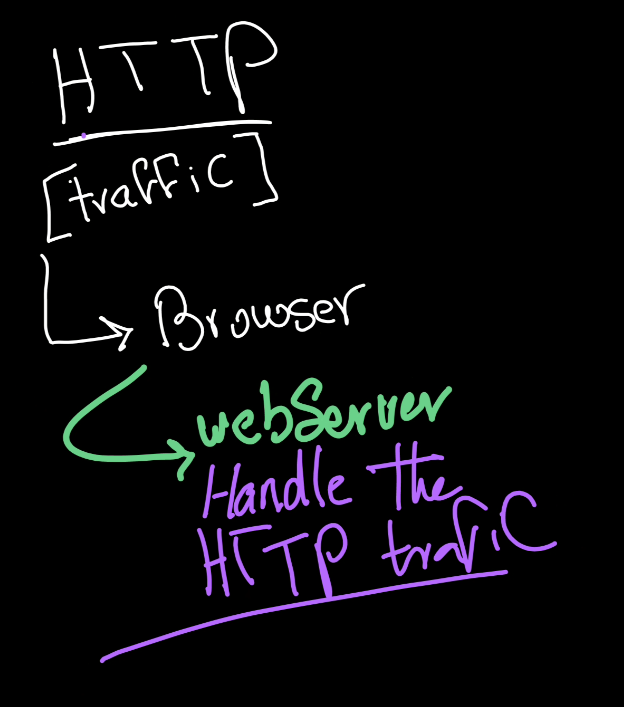 HTTP
[traffic]
Browser
webServer
Handle the
HTTP trafic